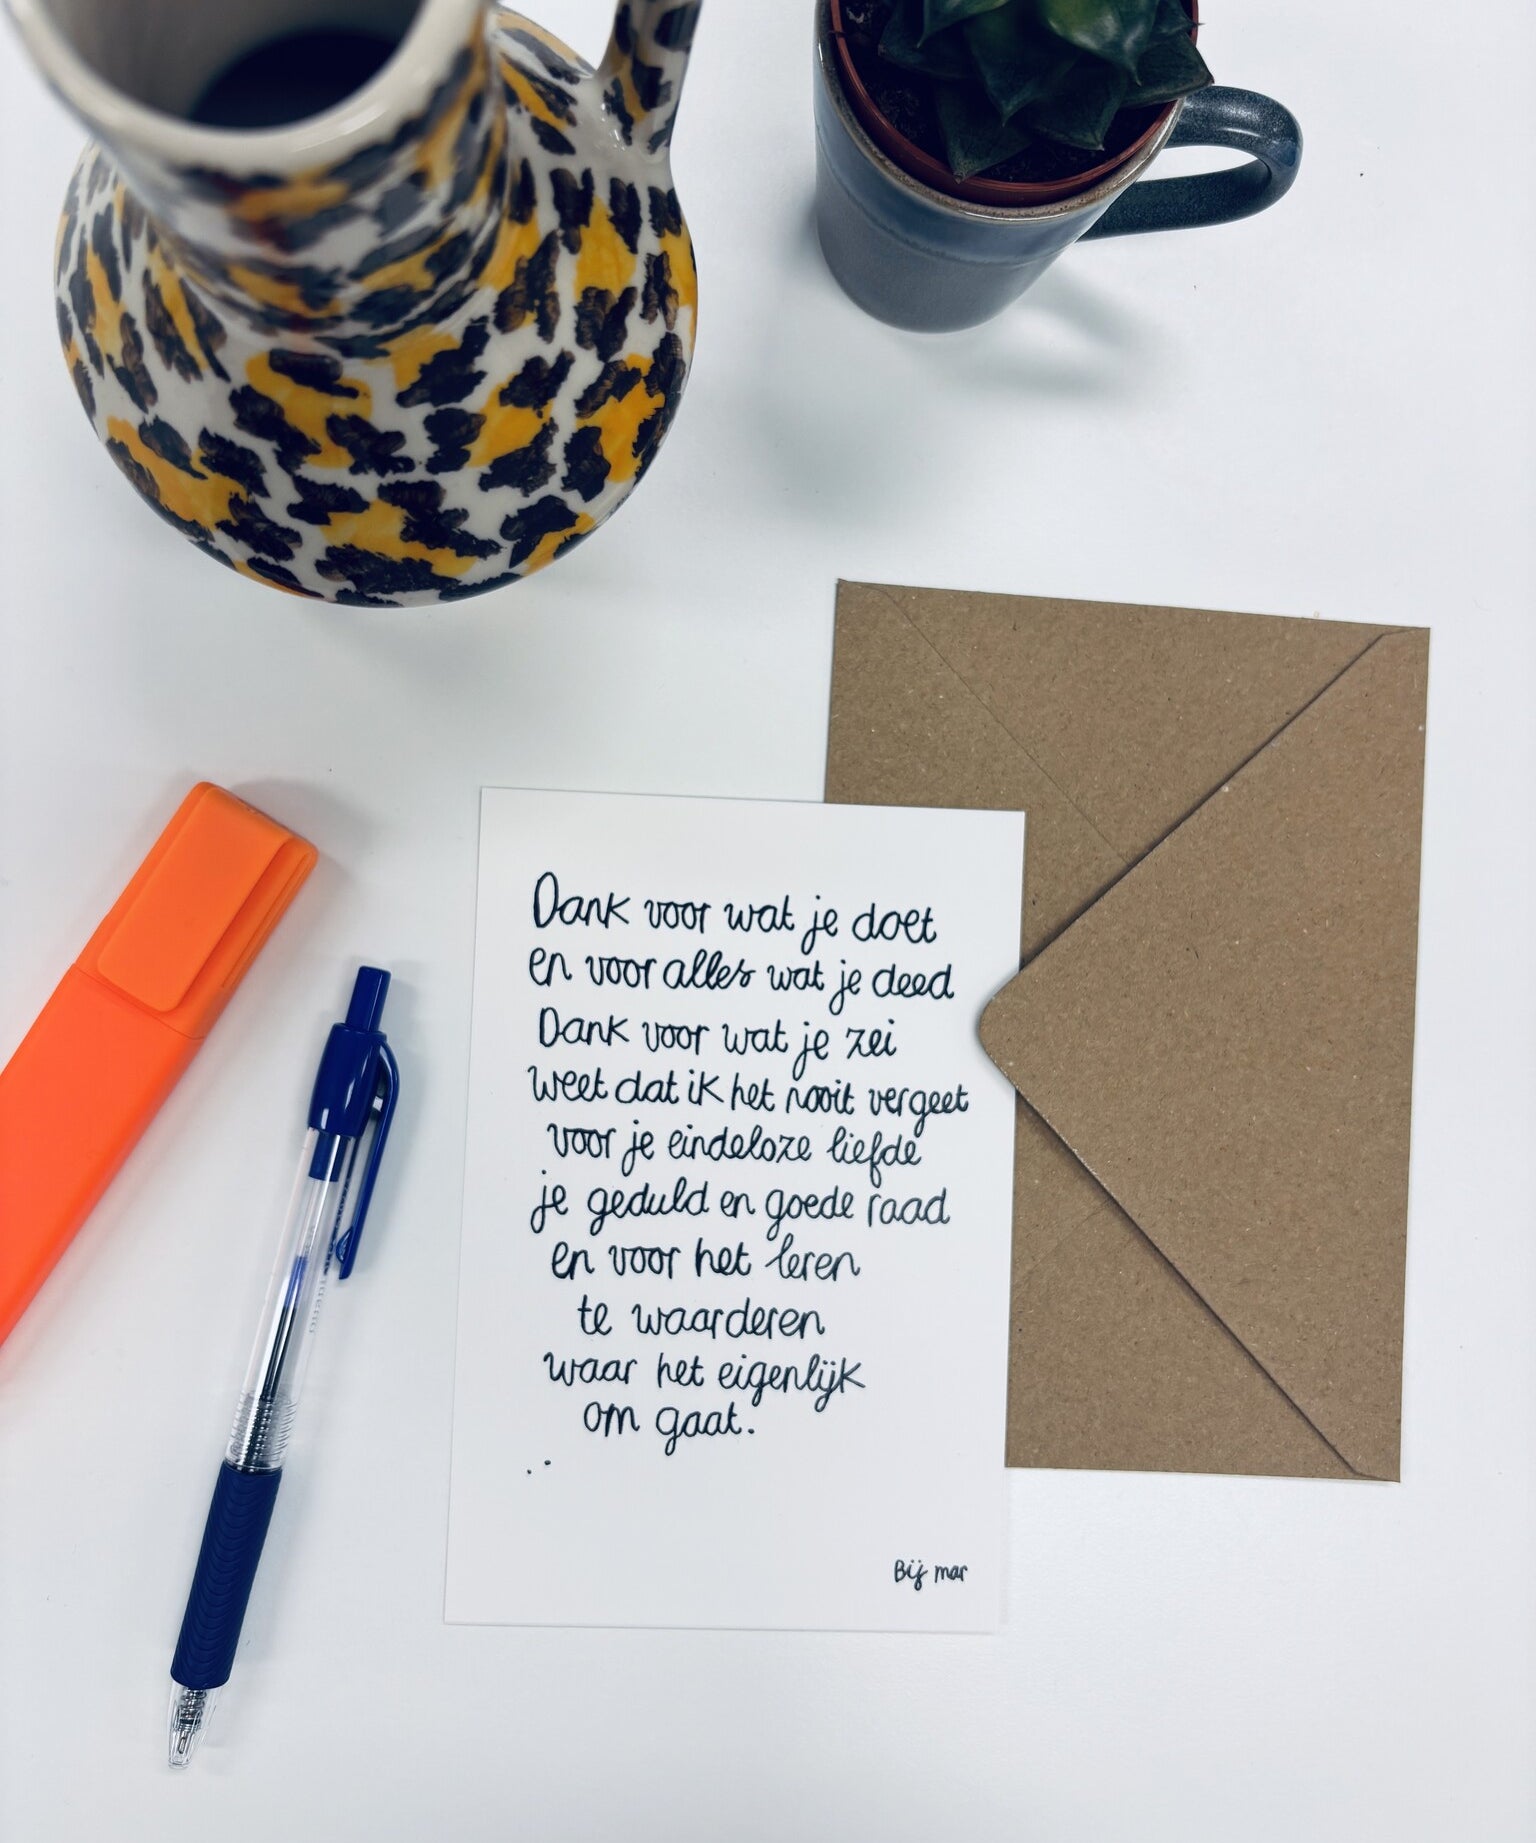 Dank voor wat je doet
en voor alles wat je deed
Dank voor wat je zei
weet dat ik het nooit vergeet
voor je eindeloze liefde
je geduld en goede raad
en voor het leren
te waarderen
waar het eigenlijk
om gaat.
..
Bij mar